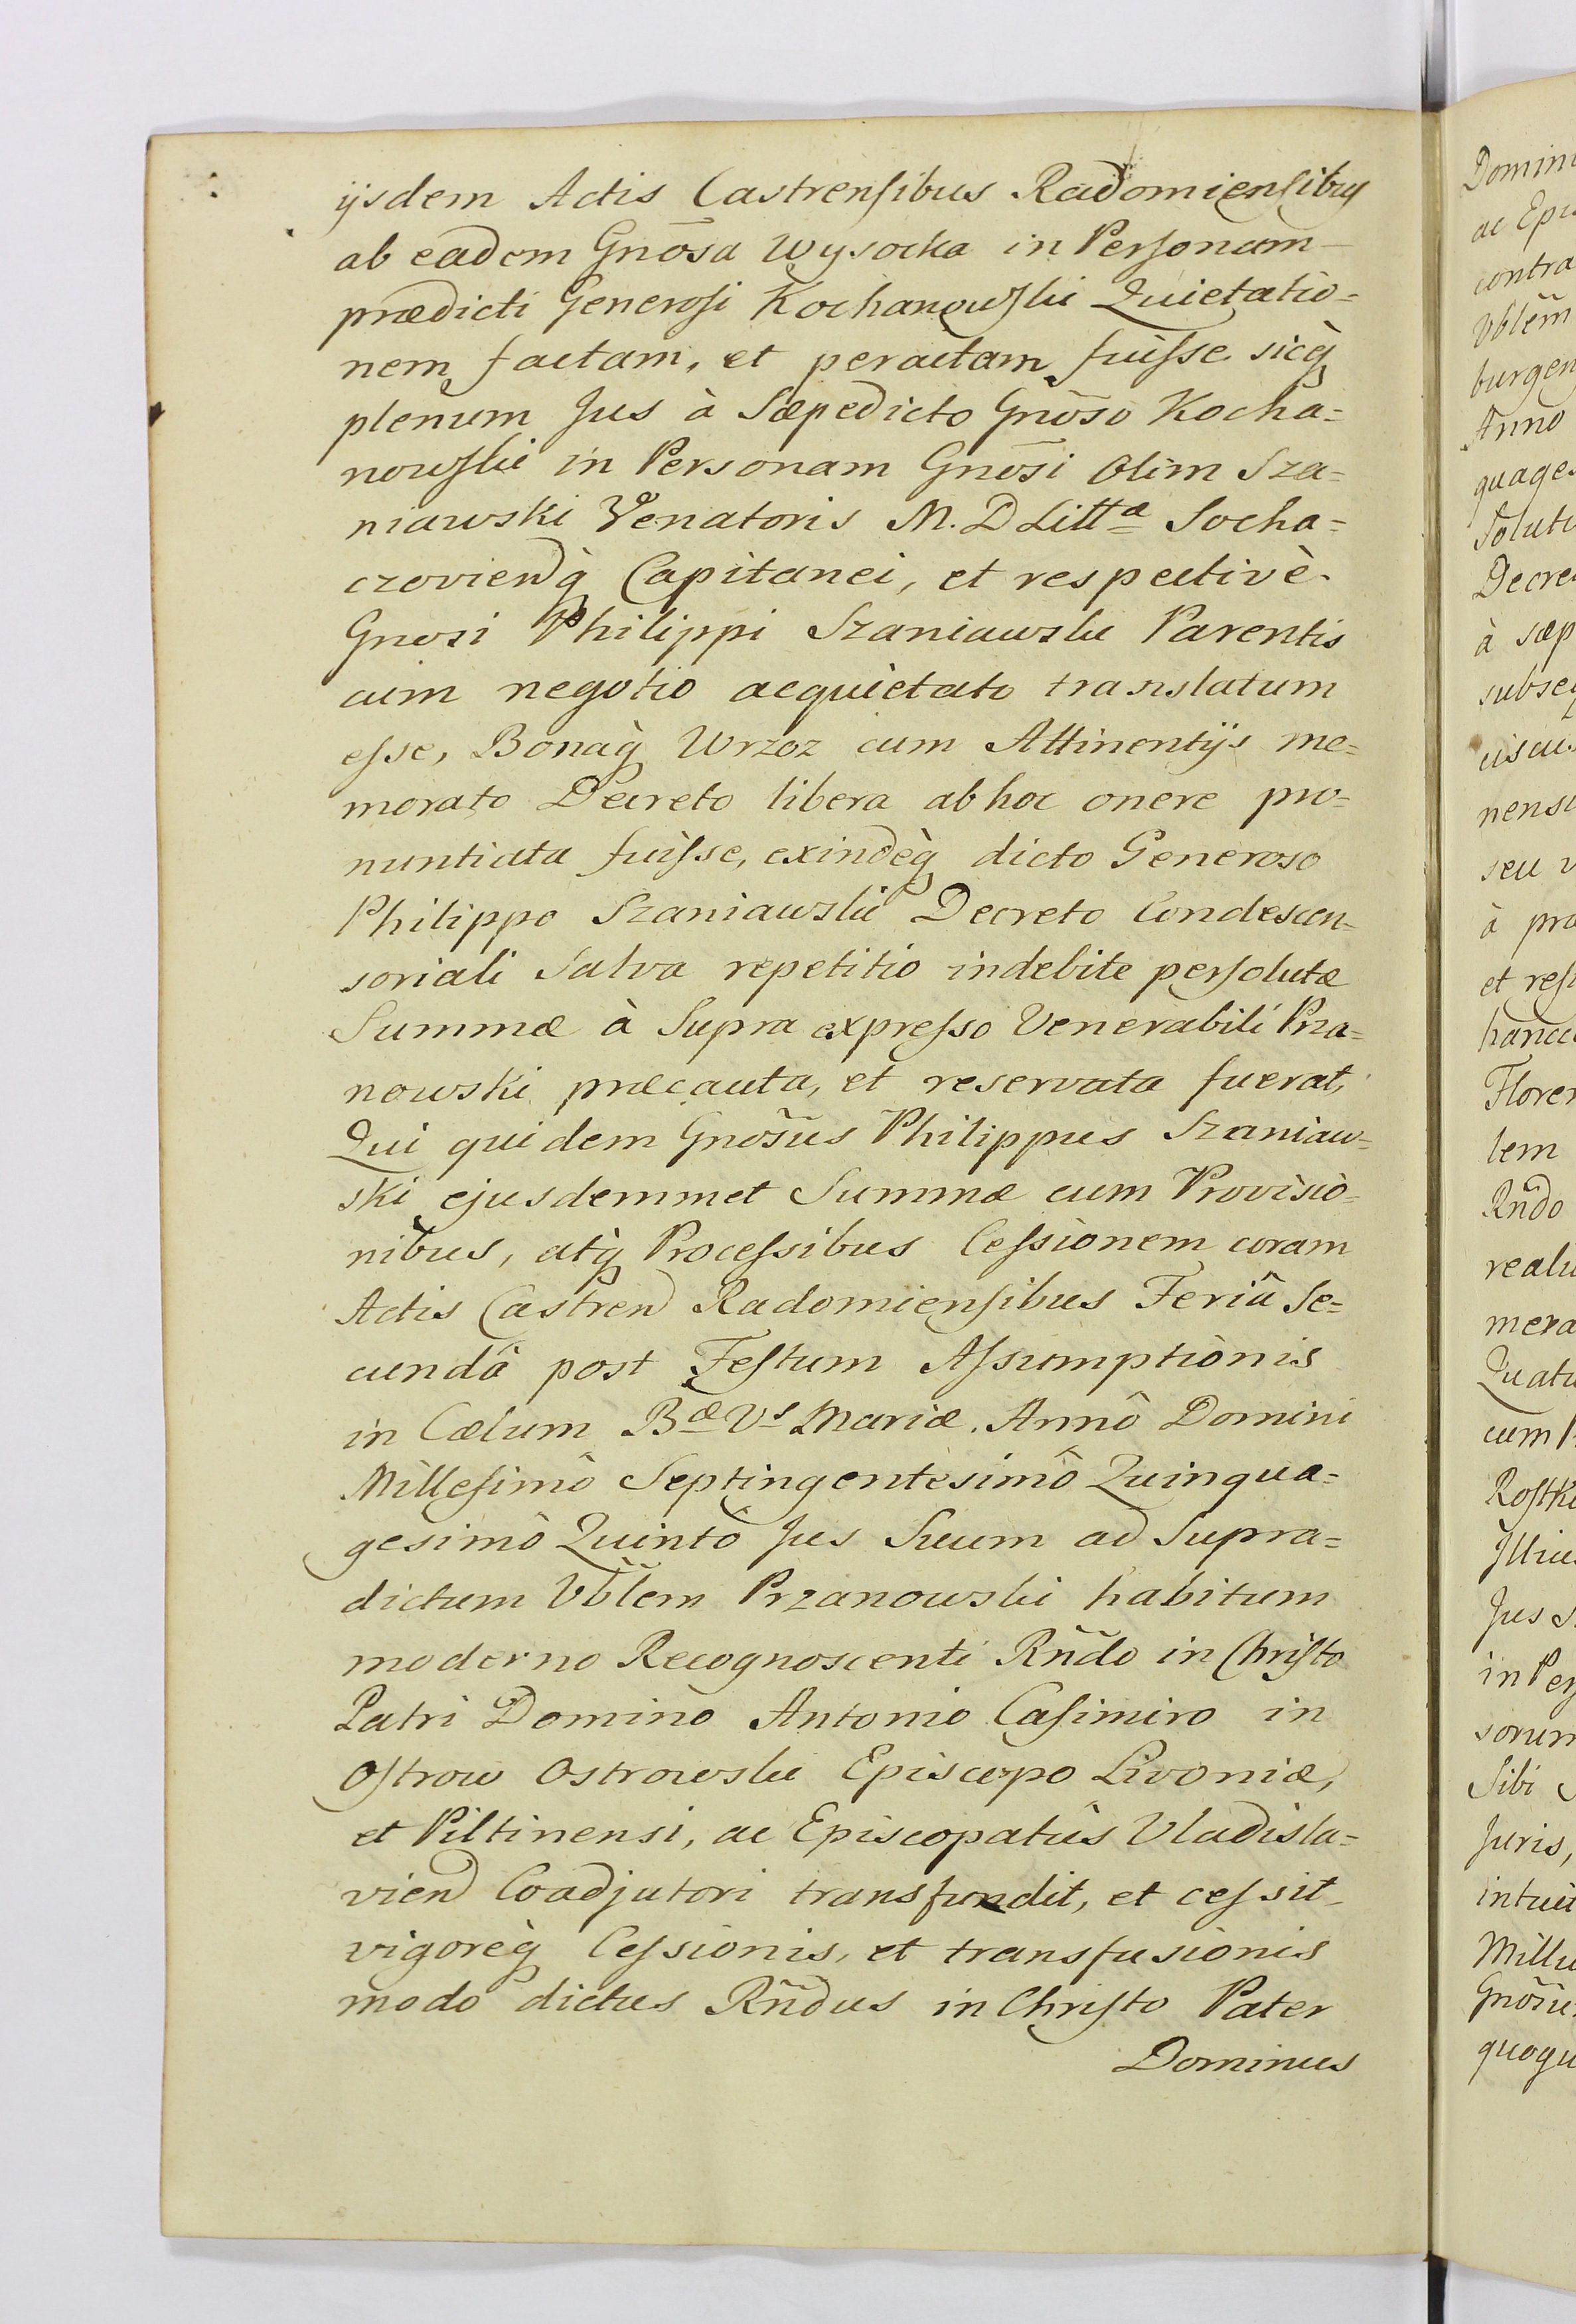 ijsdem Actis Castrensibus Radomiensibus
ab eadem Gnosa Wysocka in Personam
prædicti Generosi Kochanowski Quietatio=
nem factam, et peractam fuisse sicq̀
plenum Jus à Sæpedicto Gnoso Kocha=
nowski in Personam Gnosi Olim Sza=
niawski Venatoris M. D Litta Socha=
czoviend q̀ Capitanei, et respectivè
Gnosi Philippi Szaniawski Parentis
cum negotio acquietato translatum
esse, Bonaq̀ Wrzoz cum Attinentijs me=
morato Decreto libera ab hoc onere pro=
nuntiata fuisse, exindèq̀ dicto Generoso
Philippo Szaniawski Decreto Condescen=
soriali Salva repetitio indebite persolutæ
Summæ à Supra expresso Venerabili Prza=
nowski præcauta, et reservata fuerat,
Qui quidem Gnosus Philippus Szaniaw=
ski ejusdemmet Summæ cum Provisio=
nibus, atq̀ Processibus Cessionem coram
Actis Castren Radomiensibus Feriâ Se=
cundâ post Festum Assumptionis
in Cælum Bæ Vs Mariæ. Annô Domini
Millesimô Septingentesimô Quinqua=
gesimô Quintô Jus Suum ad Supra=
dictum Vblem Przanowski habitum
moderno Recognoscenti Rndo in Christo
Patri Domino Antonio Casimiro in
Ostrow Ostrowski Episcopo Livoniæ,
et Piltinensi, ac Episcopatûs Vladisla=
vien Coadjutori transfundit, et cessit
vigorèq̀ Cessionis, et transfusionis
modo dictus Rndus in Christo Pater
Dominus
Domin
ac Epis
contra
Vblem
burgen
Anno
quages
Solut
Decre
à sæp
subseq
nensi
seu v
à præ
et resi
Floren
lem
Rndo
realu
mera
Quatu
cum P
Rostk
Illius
Jus S
in Per
sorum
Sibi
Juris,
intuit
Mille
Gnosu
quoqu